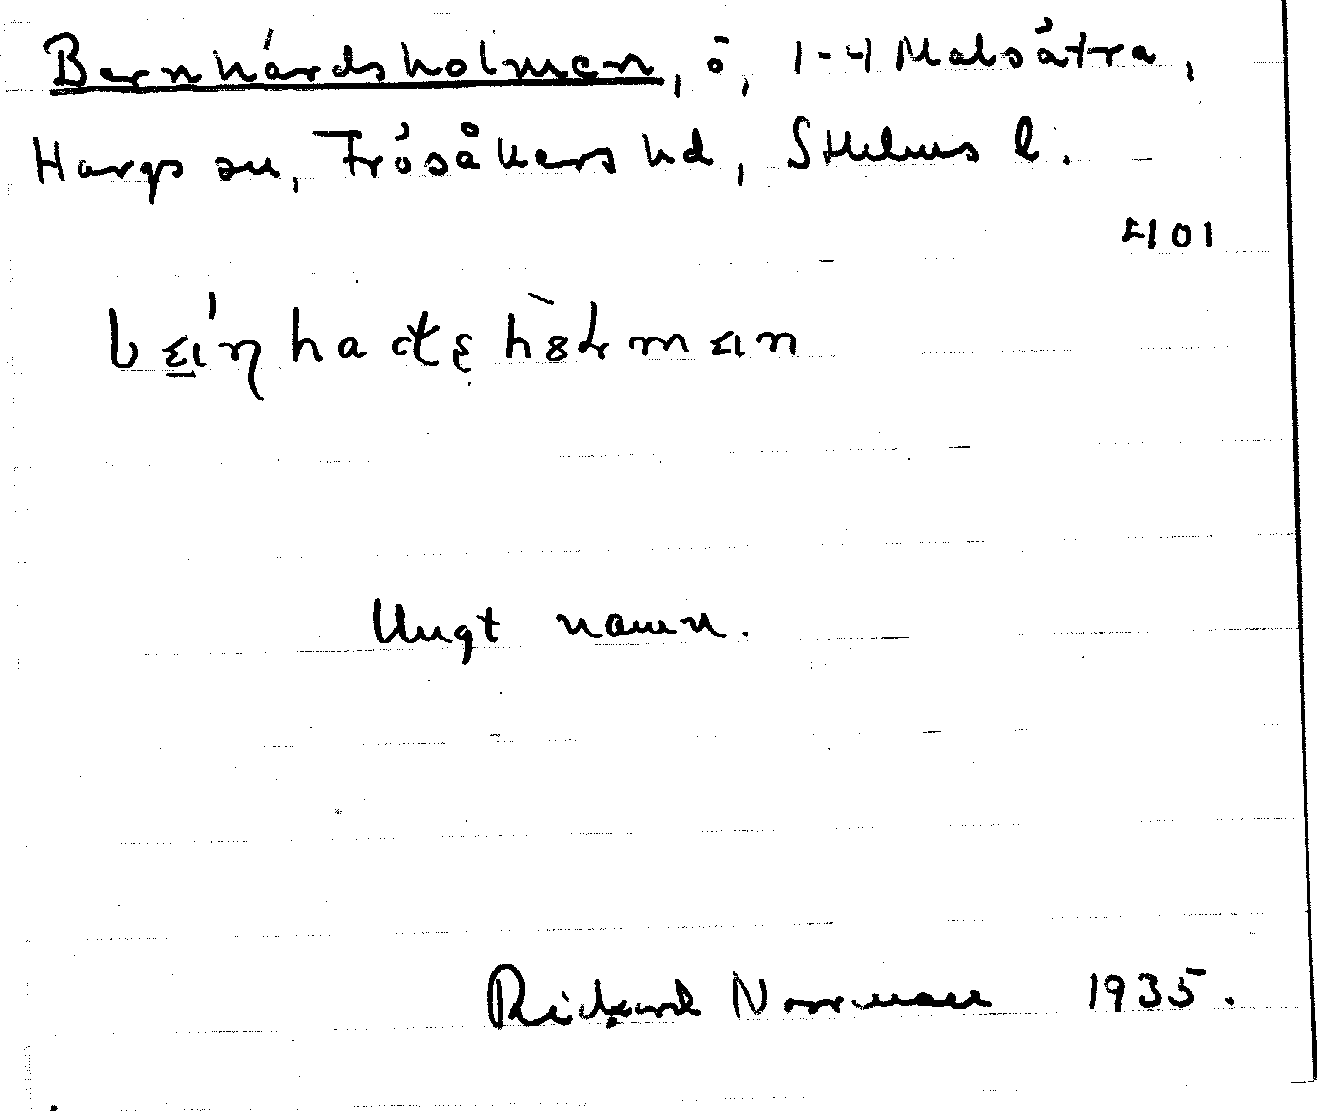 Bernhardsholmen, ö, 1-4 Malsätra,
Hargs sn, Frösåkers hd, Sthlms l.
4101
Ungt namn.
Rickard Norrman 1935.